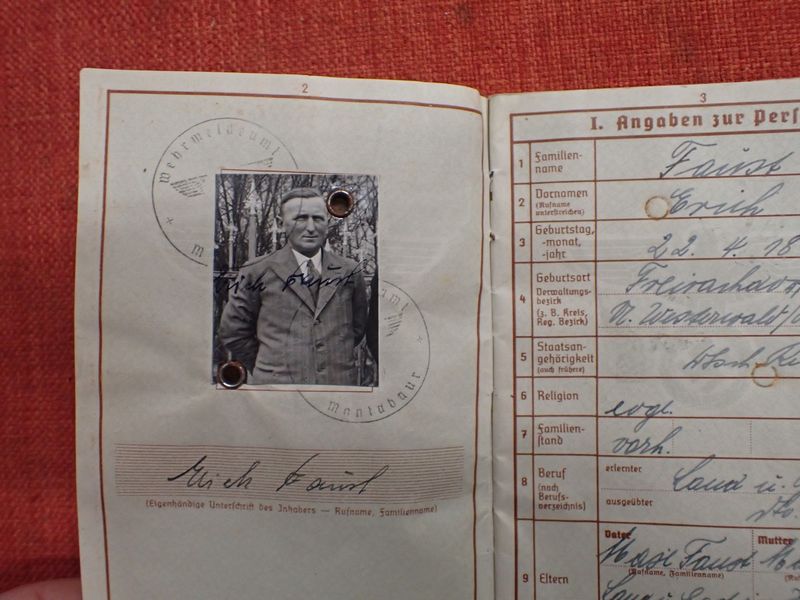 2
Wehrmeldeamt
M
Erich Faust
amt
Montabaur
Erich Faust
(Eigenhändige Unterschrift des Inhabers — Rufname, Familienname)
3
I. Angaben zur Pers
1 Familien-
name
Faust
2 Vornamen
(Rufname
unterstreichen)
Erich
3 Geburtstag,
-monat,
-jahr
22. 4. 18
4 Geburtsort
Verwaltungs-
bezirk
(z. B. Kreis,
Reg. Bezirk)
Westerwald/
5 Staatsan-
gehörigkeit
(auch frühere)
Dtsch.
6 Religion
evgl.
7 Familien-
stand
verh.
8 Beruf
(nach
Berufs-
verzeichnis)
erlernter
Land u.
ausgeübter
9 Eltern
Vater
Mutter
Faust
(Rufname, Familienname)
(Ru